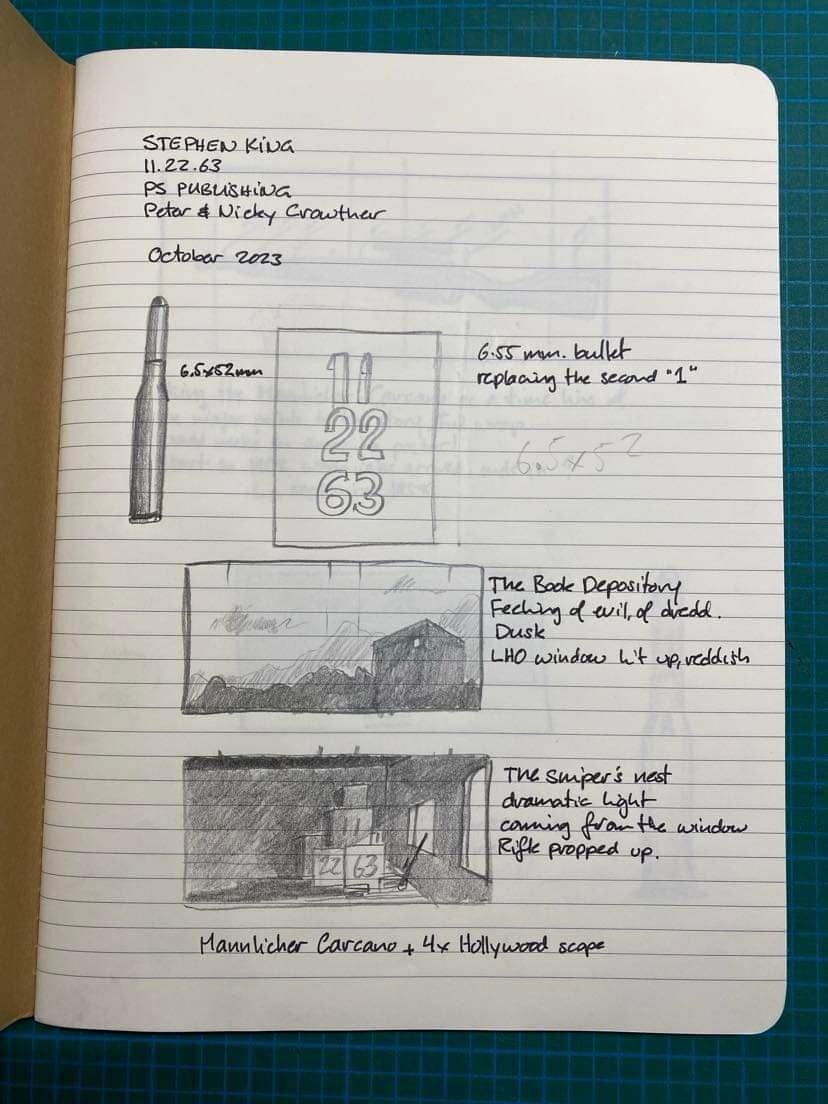 STEPHEN KING
11.22.63
PS PUBLISHING
Peter & Nicky Crowther
October 2023
6.5x52mm
11
22
63
6.55 mm. bullet
replacing the second "1"
6.5x52
The Book Depository
Feeling of evil, of dredd.
Dusk
LHO window lit up, reddish
11
22 63
The sniper's nest
dramatic light
coming from the window
Rifle propped up.
Mannlicher Carcano + 4x Hollywood scope